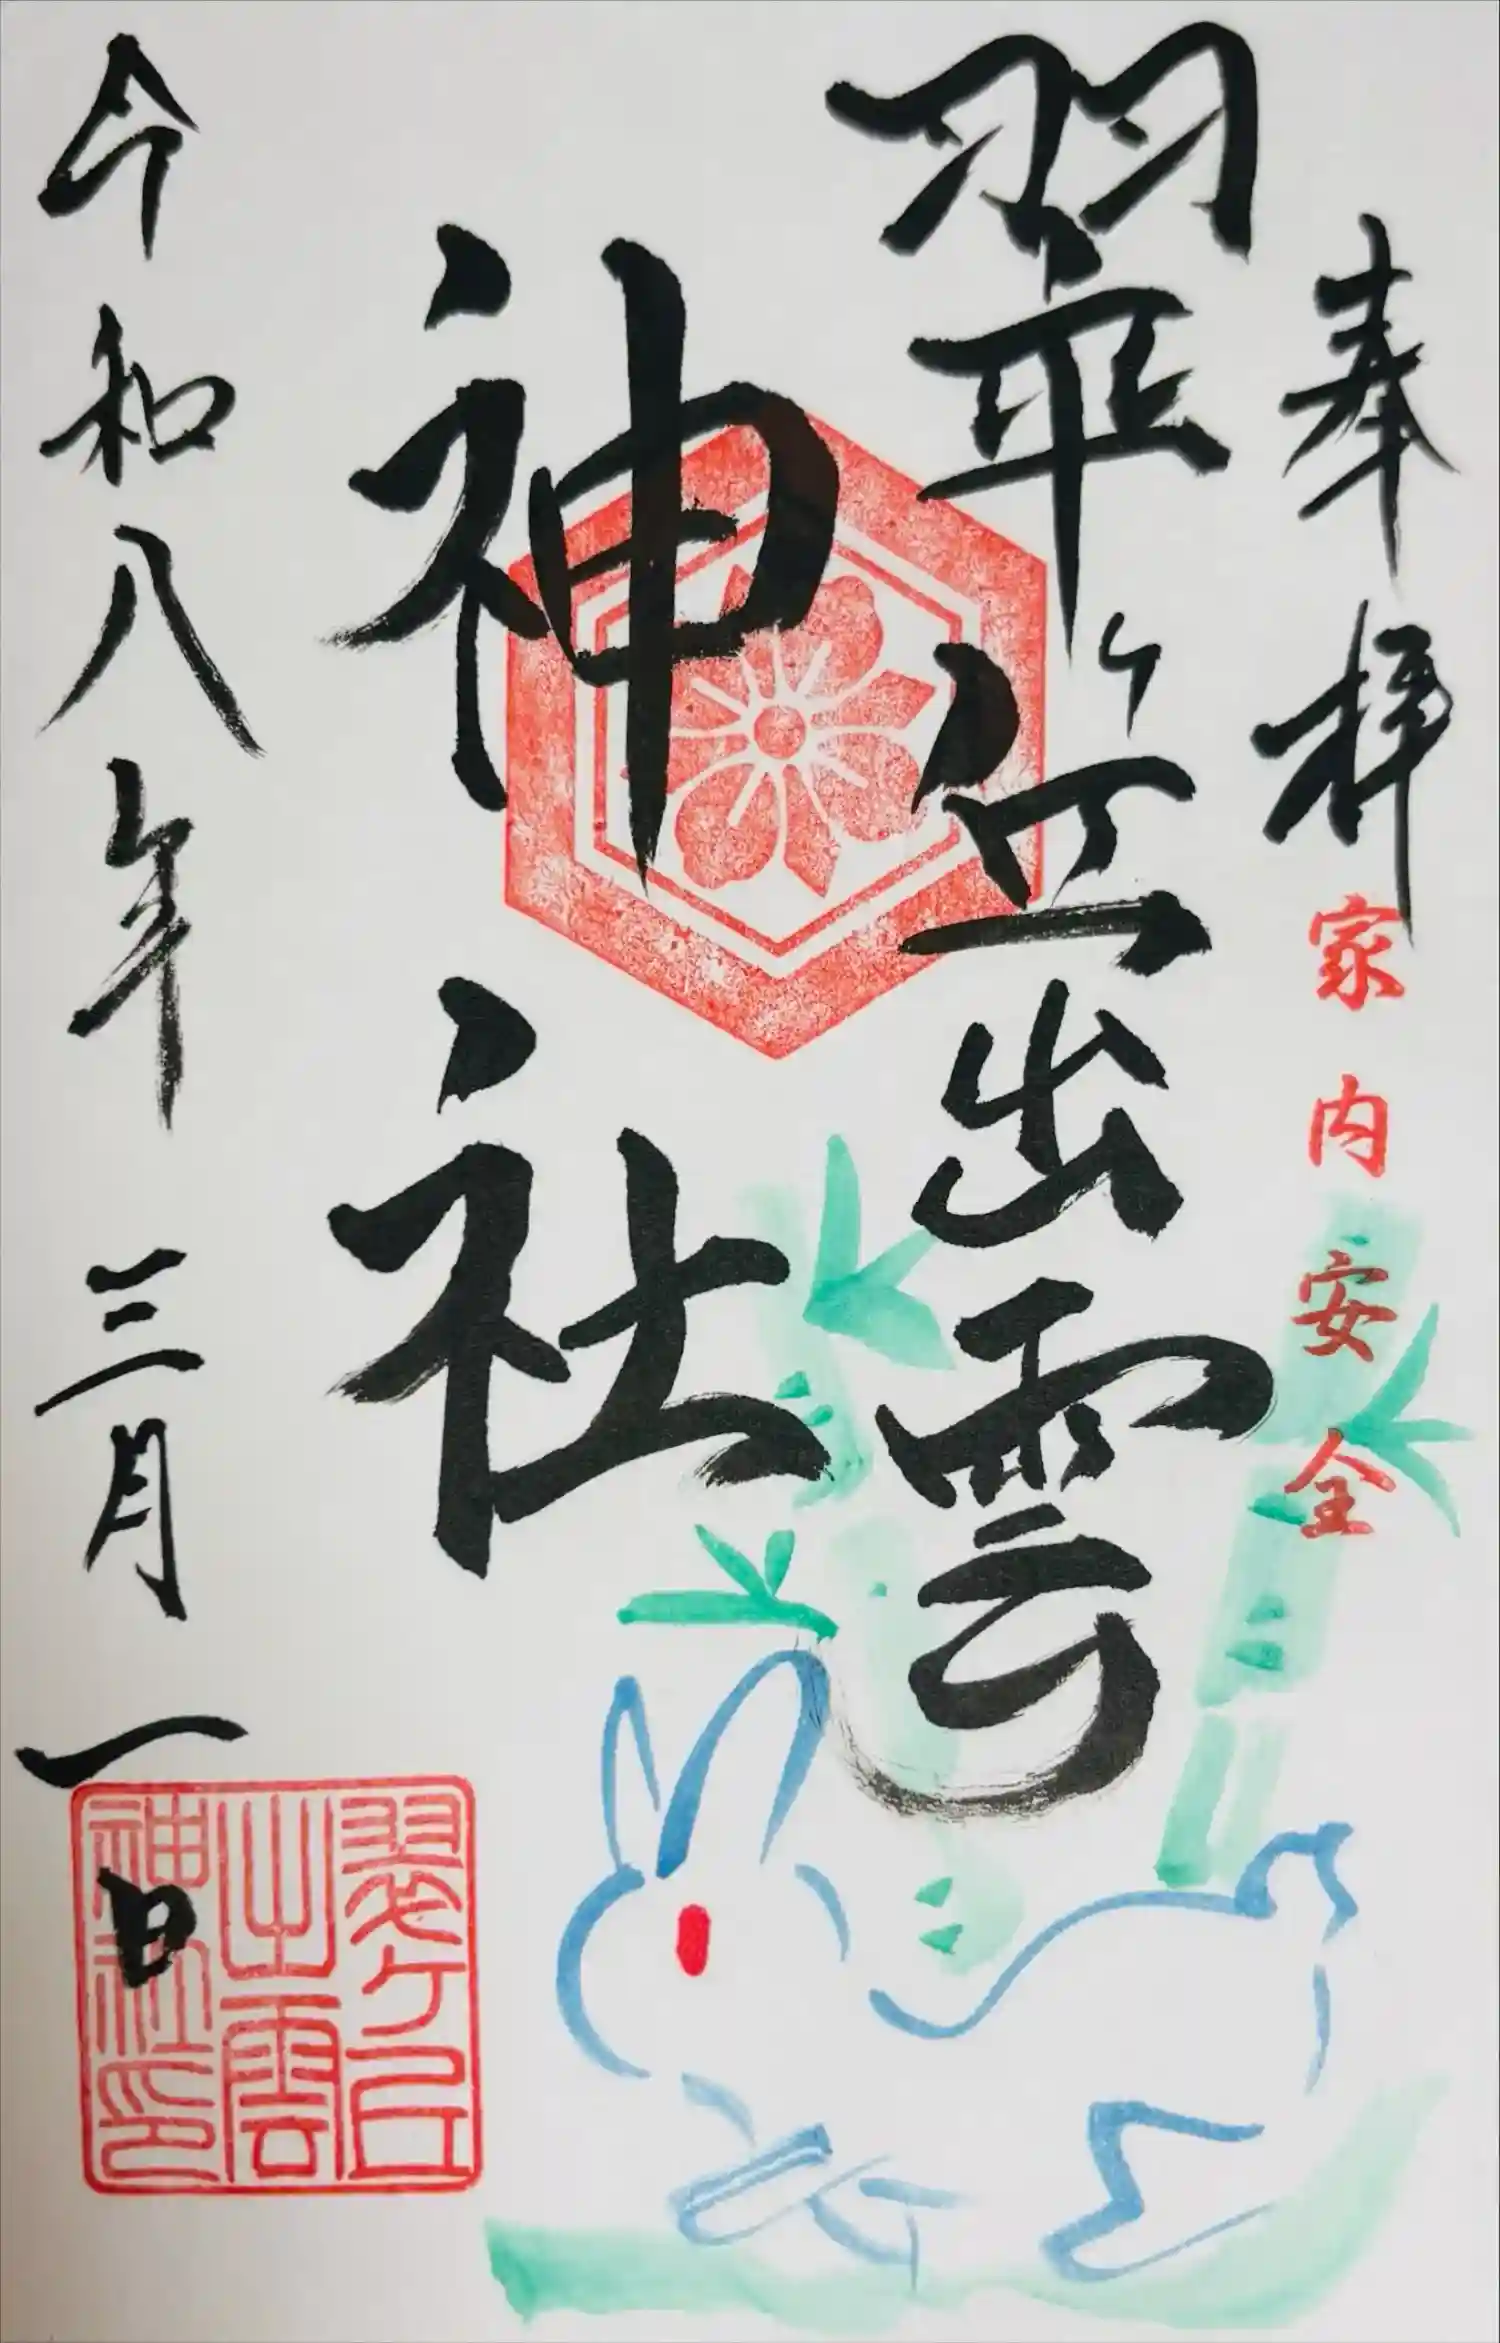 奉拝
家内安全
翠ヶ丘出雲
神社
令和八年三月一日
翠ヶ丘
出雲
神社印